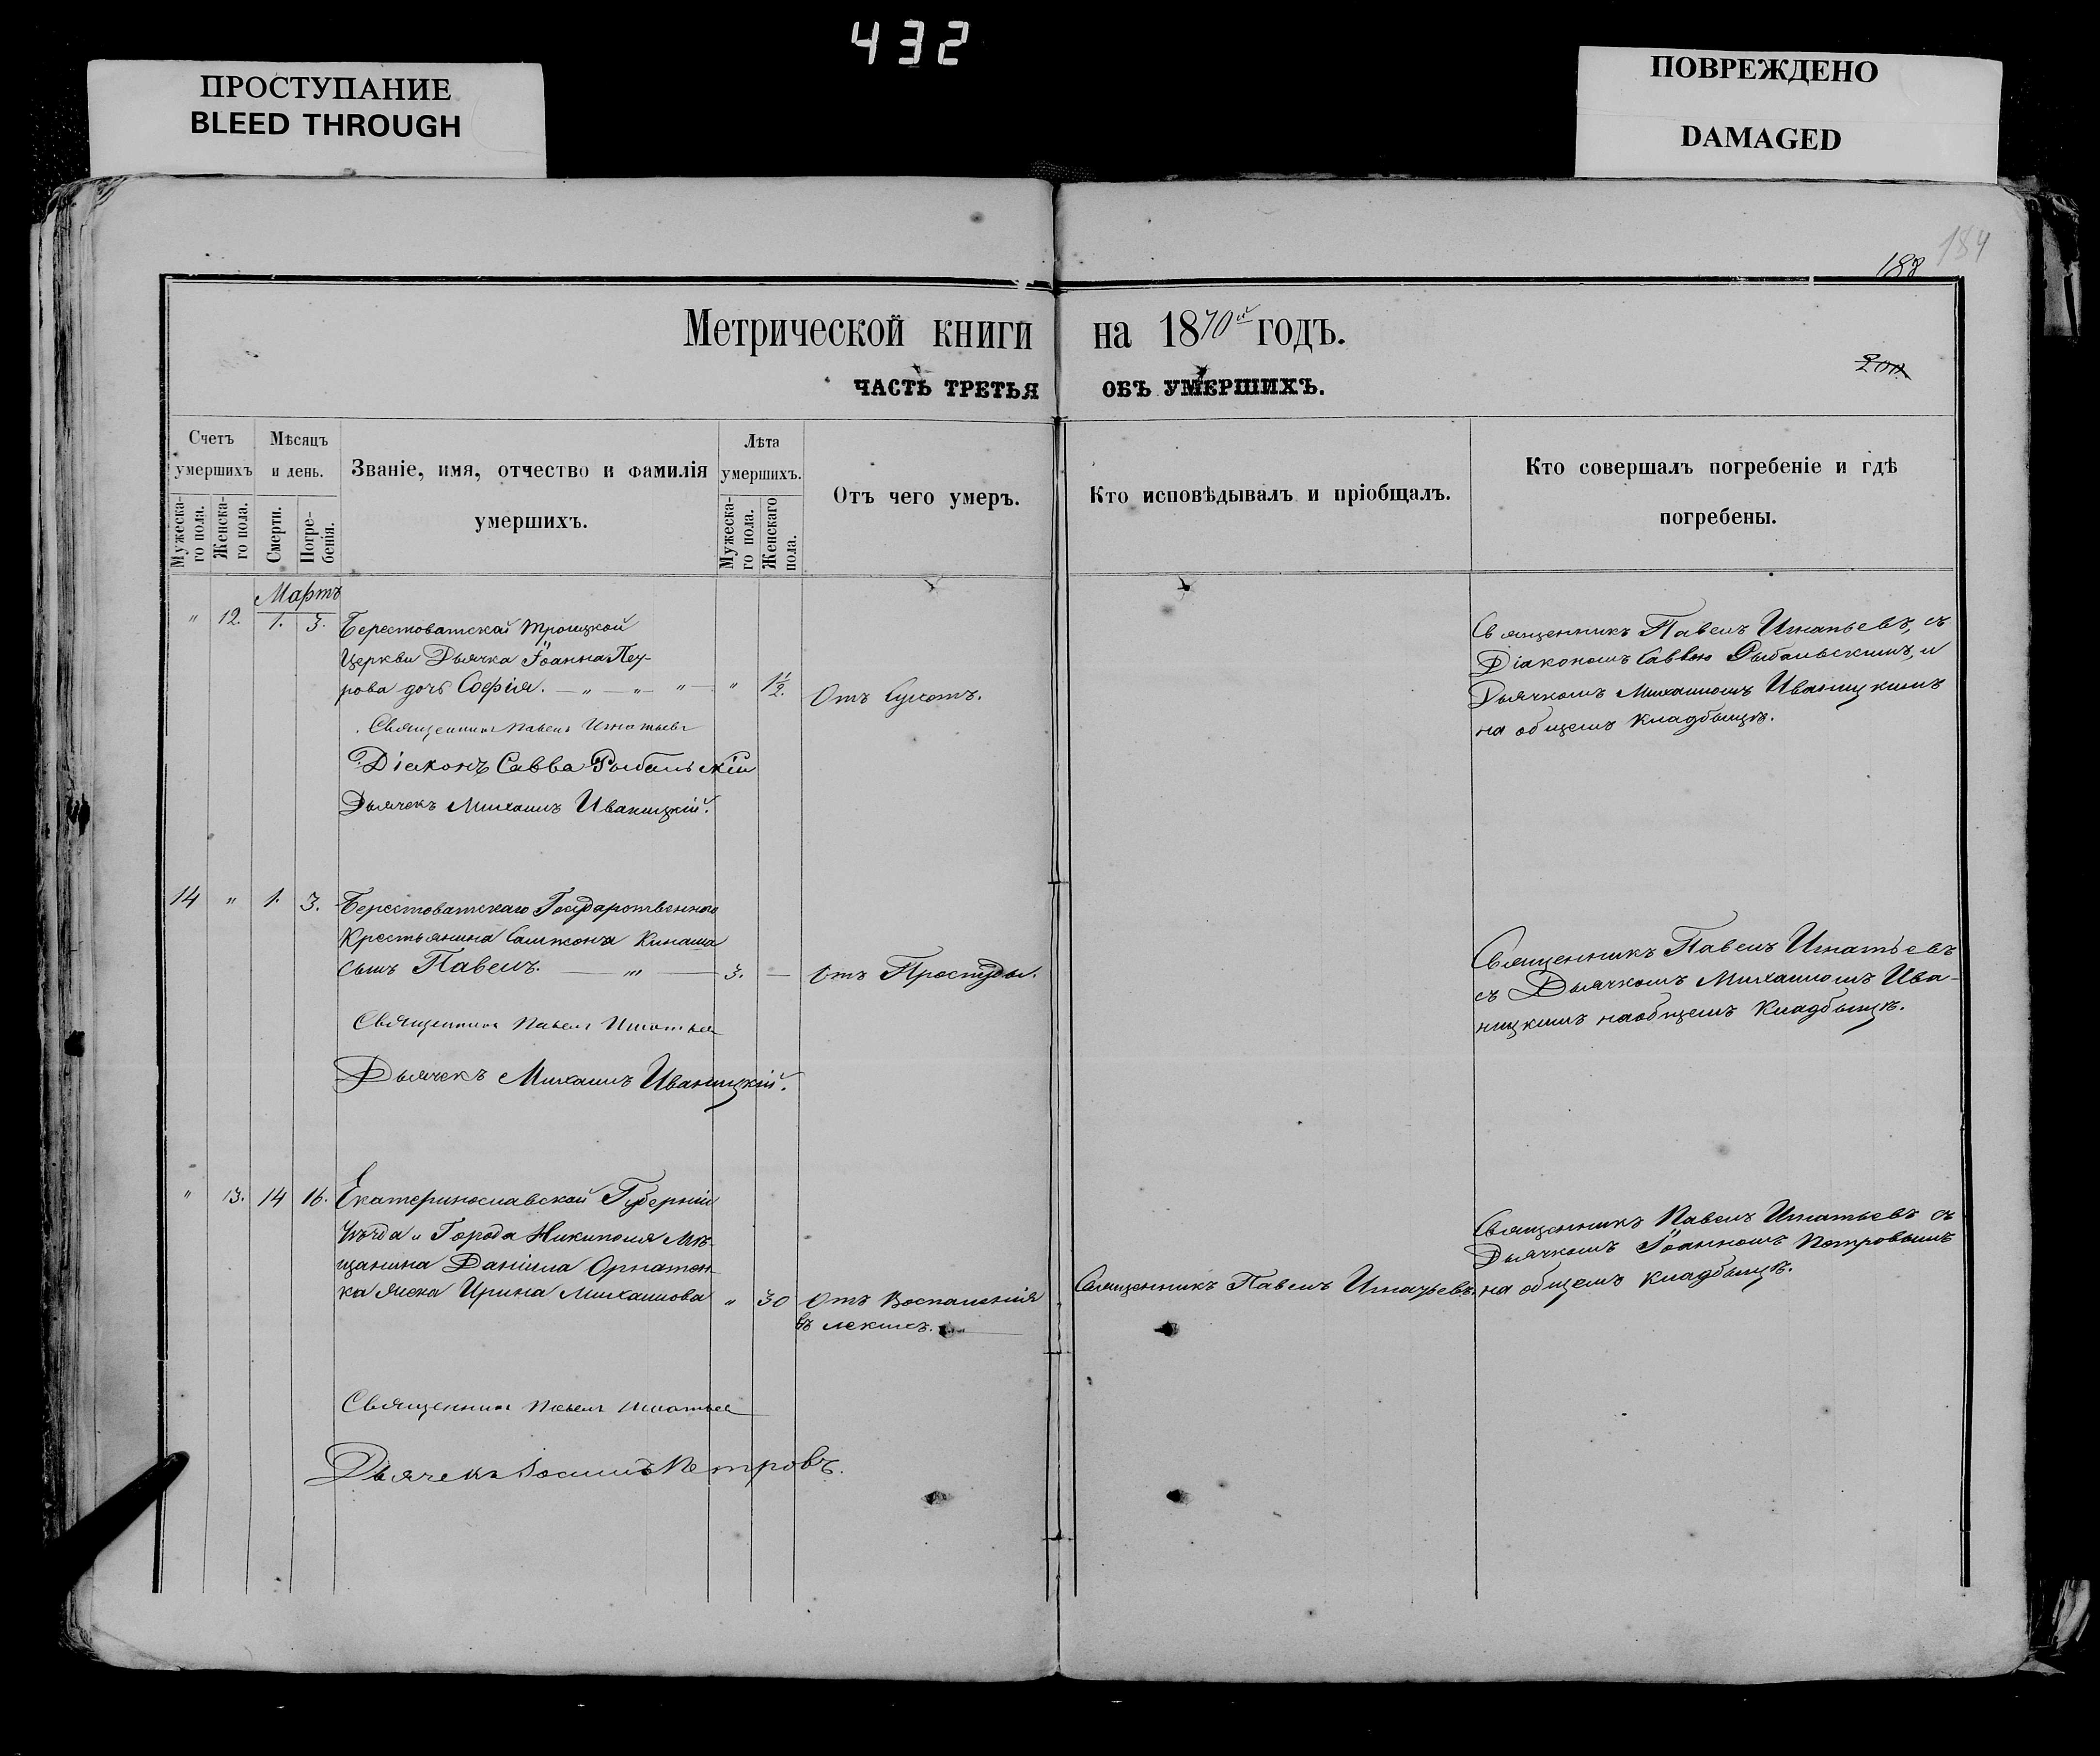 432
ПРОСТУПАНИЕ
BLEED THROUGH
ПОВРЕЖДЕНО
DAMAGED
184
188
Метрической книги на 1870й годъ.
200
ЧАСТЬ ТРЕТЬЯ ОБЪ УМЕРШИХЪ.
Счетъ умершихъ
Мужеска-го пола.
Женска-го пола.
Мѣсяцъ и день.
Смерти.
Погре-бенія.
Званіе, имя, отчество и фамилія умершихъ.
Лѣта умершихъ.
Мужеска-го пола.
Женскаго пола.
Отъ чего умеръ.
Кто исповѣдывалъ и пріобщалъ.
Кто совершалъ погребеніе и гдѣ погребены.
Мартъ
" 12. 1. 3. Берестоватской Троицкой
Церкви Дьячка Іоанна Пет-
рова дочь Софія. — " — " — " — " 1½. Отъ Сухотъ.
Священникъ Павелъ Игнатьевъ
Діаконъ Савва Рыбальскій
Дьячекъ Михаилъ Иваницкій.
Священникъ Павелъ Игнатьевъ, съ
Діакономъ Саввою Рыбальскимъ, и
Дьячкомъ Михаиломъ Иваницкимъ
на общемъ кладбищѣ.
14 " 1. 3. Берестоватскаго Государственнаго
Крестьянина Сампсона Кинаша
сынъ Павелъ. — " — 3. — Отъ Простуды.
Священникъ Павелъ Игнатьев
Дьячекъ Михаилъ Иваницкій.
Священникъ Павелъ Игнатьевъ
съ Дьячкомъ Михаиломъ Ива-
ницкимъ на общемъ Кладбищѣ.
" 13. 14 16. Екатеринославской Губерніи
Уѣзда и Города Никиполя Мѣ-
щанина Даніила Орнатен-
ка жена Ирина Михаилова " 30 Отъ Воспаленія
въ легкихъ.
Священникъ Павелъ Игнатьевъ.
Священникъ Павелъ Игнатьевъ съ
Дьячкомъ Іоанномъ Петровымъ
на общемъ кладбищѣ.
Священникъ Павелъ Игнатьев
Дьячекъ Іоаннъ Петровъ.